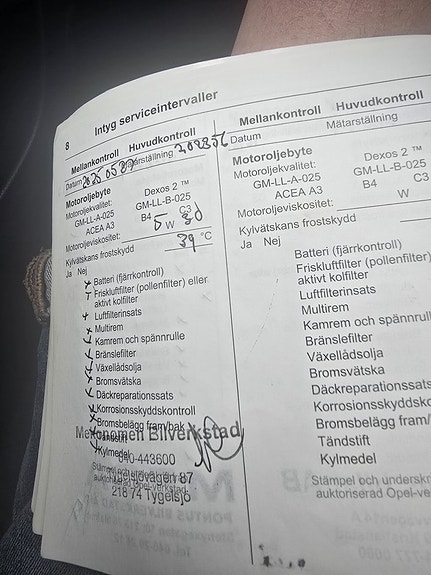 8
Intyg serviceintervaller
Mellankontroll Huvudkontroll
Datum Mätarställning
Motoroljebyte
Motoroljekvalitet: Dexos 2 ™
GM-LL-A-025 GM-LL-B-025
ACEA A3 B4 C3
Motoroljeviskositet: 5 W 30
Kylvätskans frostskydd 39 °C
Ja Nej
Batteri (fjärrkontroll)
Friskluftfilter (pollenfilter) eller
aktivt kolfilter
Luftfilterinsats
Multirem
Kamrem och spännrulle
Bränslefilter
Växellådsolja
Bromsvätska
Däckreparationssats
Korrosionsskyddskontroll
Bromsbelägg fram/bak
Mekonomen Bilverkstad
Tändstift
Kylmedel
040-443600
Stämpel och underskrift
auktoriserad Opel-verkstad
218 74 Tygelsjö
Mellankontroll Huvudkontroll
Datum Mätarställning
Motoroljebyte
Motoroljekvalitet: Dexos 2 ™
GM-LL-A-025 GM-LL-B-025
ACEA A3 B4 C3
Motoroljeviskositet: W
Kylvätskans frostskydd
Ja Nej
Batteri (fjärrkontroll)
Friskluftfilter (pollenfilter)
aktivt kolfilter
Luftfilterinsats
Multirem
Kamrem och spännrulle
Bränslefilter
Växellådsolja
Bromsvätska
Däckreparationssats
Korrosionsskyddskontroll
Bromsbelägg fram/
Tändstift
Kylmedel
Stämpel och underskr
auktoriserad Opel-ver